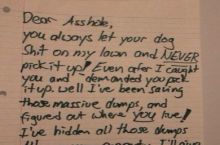 Dear Asshole,
you always let your dog
Shit on my lawn and NEVER
pick it up! Even after I caught
you and demanded you pick
it up. Well I've been saving
those massive dumps, and
figured out where you live!
I've hidden all those dumps